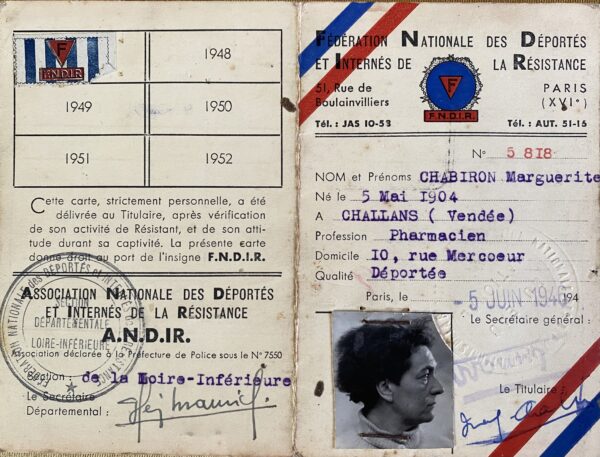 F
F.N.D.I.R.
1948
1949
1950
1951
1952
Cette carte, strictement personnelle, a été
délivrée au Titulaire, après vérification
de son activité de Résistant, et de son atti-
tude durant sa captivité. La présente carte
donne droit au port de l'insigne F.N.D.I.R.
ASSOCIATION NATIONALE DES DÉPORTÉS
ET INTERNÉS DE LA RÉSISTANCE
A.N.D.I.R.
Association déclarée à la Préfecture de Police sous le N° 7550
Section : de la Loire-Inférieure
Le Secrétaire
Départemental :
FÉDÉRATION NATIONALE des DÉPORTÉS et INTERNÉS de la RÉSISTANCE
SECTION
DÉPARTEMENTALE
LOIRE-INFÉRIEURE
FÉDÉRATION NATIONALE DES DÉPORTÉS
ET INTERNÉS DE LA RÉSISTANCE
51, Rue de
Boulainvilliers
F
F.N.D.I.R.
PARIS
(XVIe)
Tél. : JAS 10-53
Tél. : AUT. 51-16
N° 5 818
NOM et Prénoms CHABIRON Marguerite
Né le 5 Mai 1904
A CHALLANS ( Vendée)
Profession Pharmacien
Domicile 10, rue Mercoeur
Qualité Déportée
Paris, le - 5 JUIN 1948 194
Le Secrétaire général :
Le Titulaire :